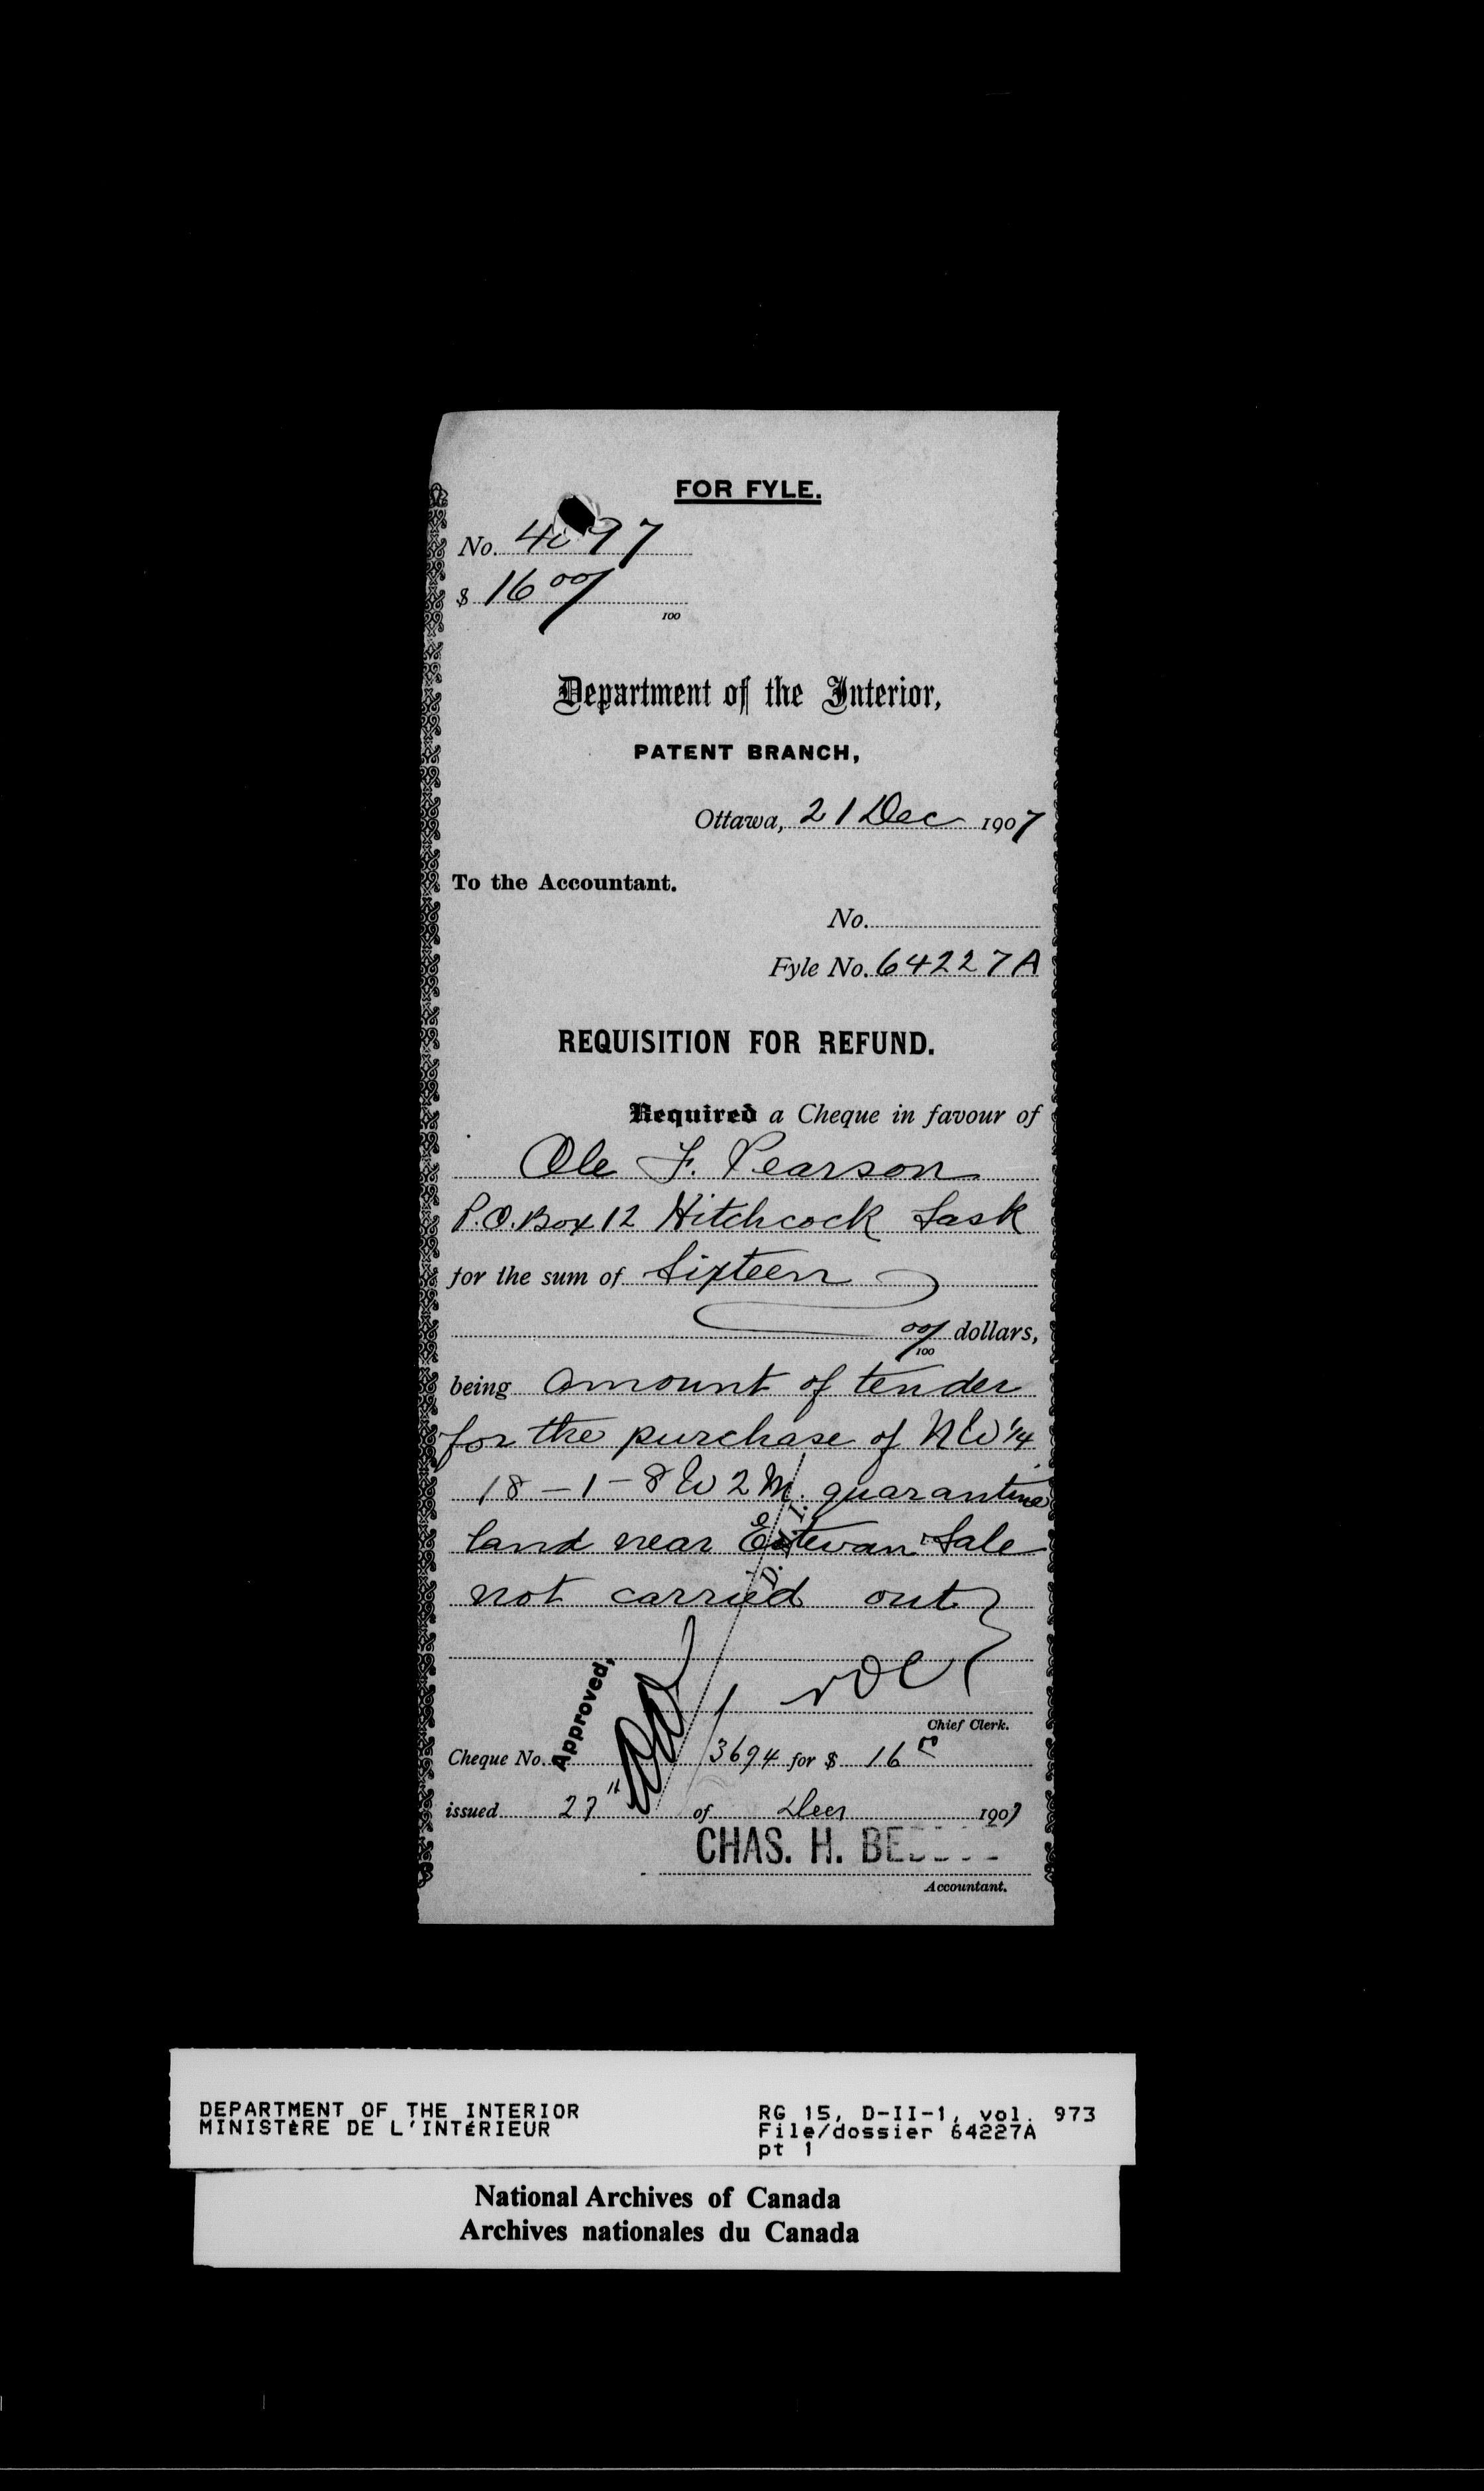 FOR FYLE.
No. 4097
$ 16 00/100
Department of the Interior,
PATENT BRANCH,
Ottawa, 21 Dec 1907
To the Accountant.
No.
Fyle No. 64227A
REQUISITION FOR REFUND.
Required a Cheque in favour of
Ole F. Pearson
P.O. Box 12 Hitchcock Sask
for the sum of Sixteen
00/100 dollars,
being amount of tender
for the purchase of NW 1/4
18 - 1 - 8 W 2 M. quarantine
land near Estevan Sale
not carried out
Chief Clerk.
Approved,
D. I.
Cheque No. 3694 for $ 16
issued 27" of Decr 1907
CHAS. H.
Accountant.
DEPARTMENT OF THE INTERIOR
MINISTÈRE DE L'INTÉRIEUR
RG 15, D-II-1, vol. 973
File/dossier 64227A
pt 1
National Archives of Canada
Archives nationales du Canada